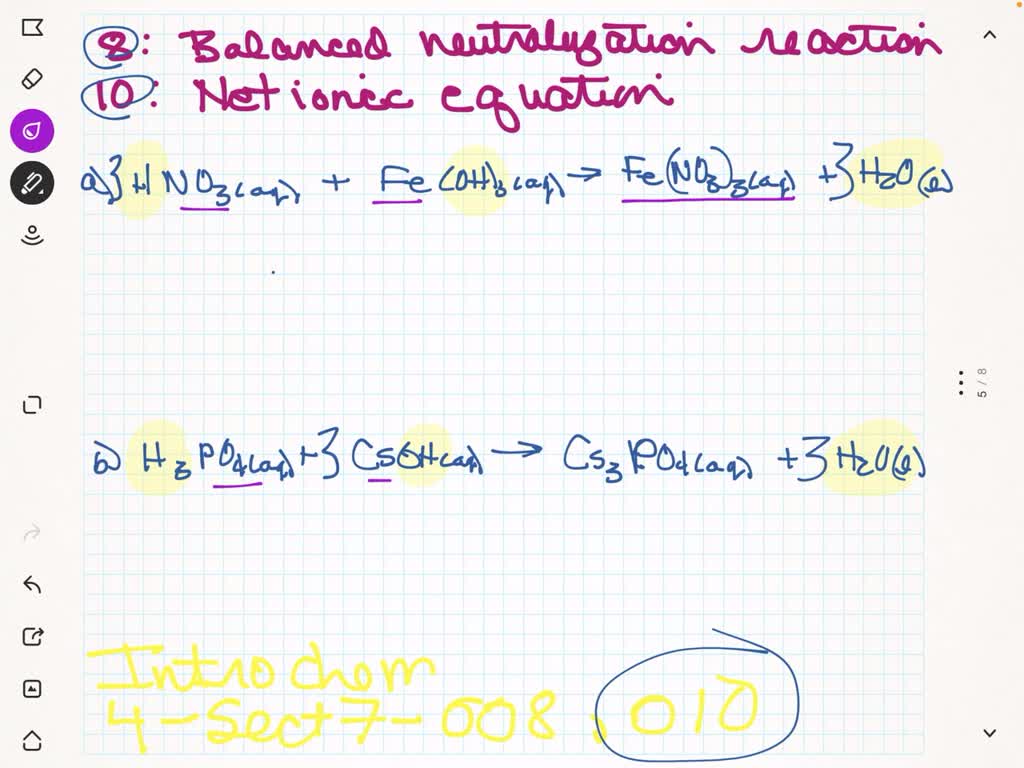 8: Balanced neutralyzation reaction
10: Net ionic equation
a) 3 HNO₃(aq) + Fe(OH)₃(aq) → Fe(NO₃)₃(aq) + 3 H₂O(l)
b) H₃PO₄(aq) + 3 CsOH(aq) → Cs₃PO₄(aq) + 3 H₂O(l)
5 / 8
Intro chem
4-Sect7-008, 010